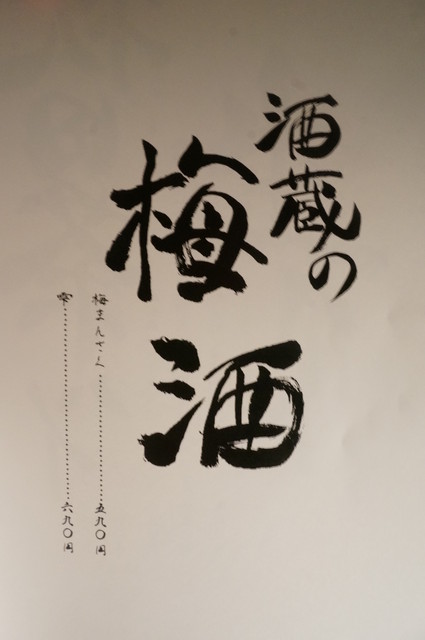 酒蔵の
梅酒
梅まんさく…………………五九〇円
雫……………………………六九〇円